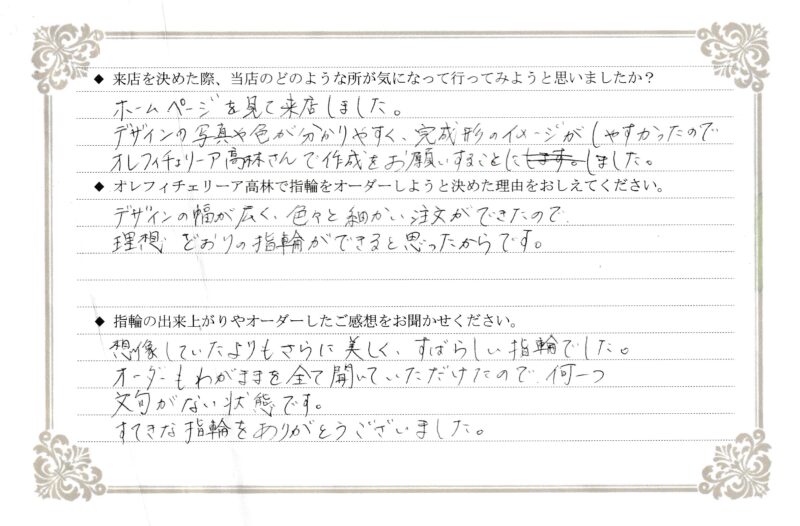 ◆ 来店を決めた際、当店のどのような所が気になって行ってみようと思いましたか？
ホームページを見て来店しました。
デザインの写真や色が分かりやすく、完成形のイメージがしやすかったので
オレフィチェリーア高林さんで作成をお願いすることにします。しました。
◆ オレフィチェリーア高林で指輪をオーダーしようと決めた理由をおしえてください。
デザインの幅が広く、色々と細かい注文ができたので、
理想どおりの指輪ができると思ったからです。
◆ 指輪の出来上がりやオーダーしたご感想をお聞かせください。
想像していたよりもさらに美しく、すばらしい指輪でした。
オーダーもわがままを全て聞いていただけたので、何一つ
文句がない状態です。
すてきな指輪をありがとうございました。